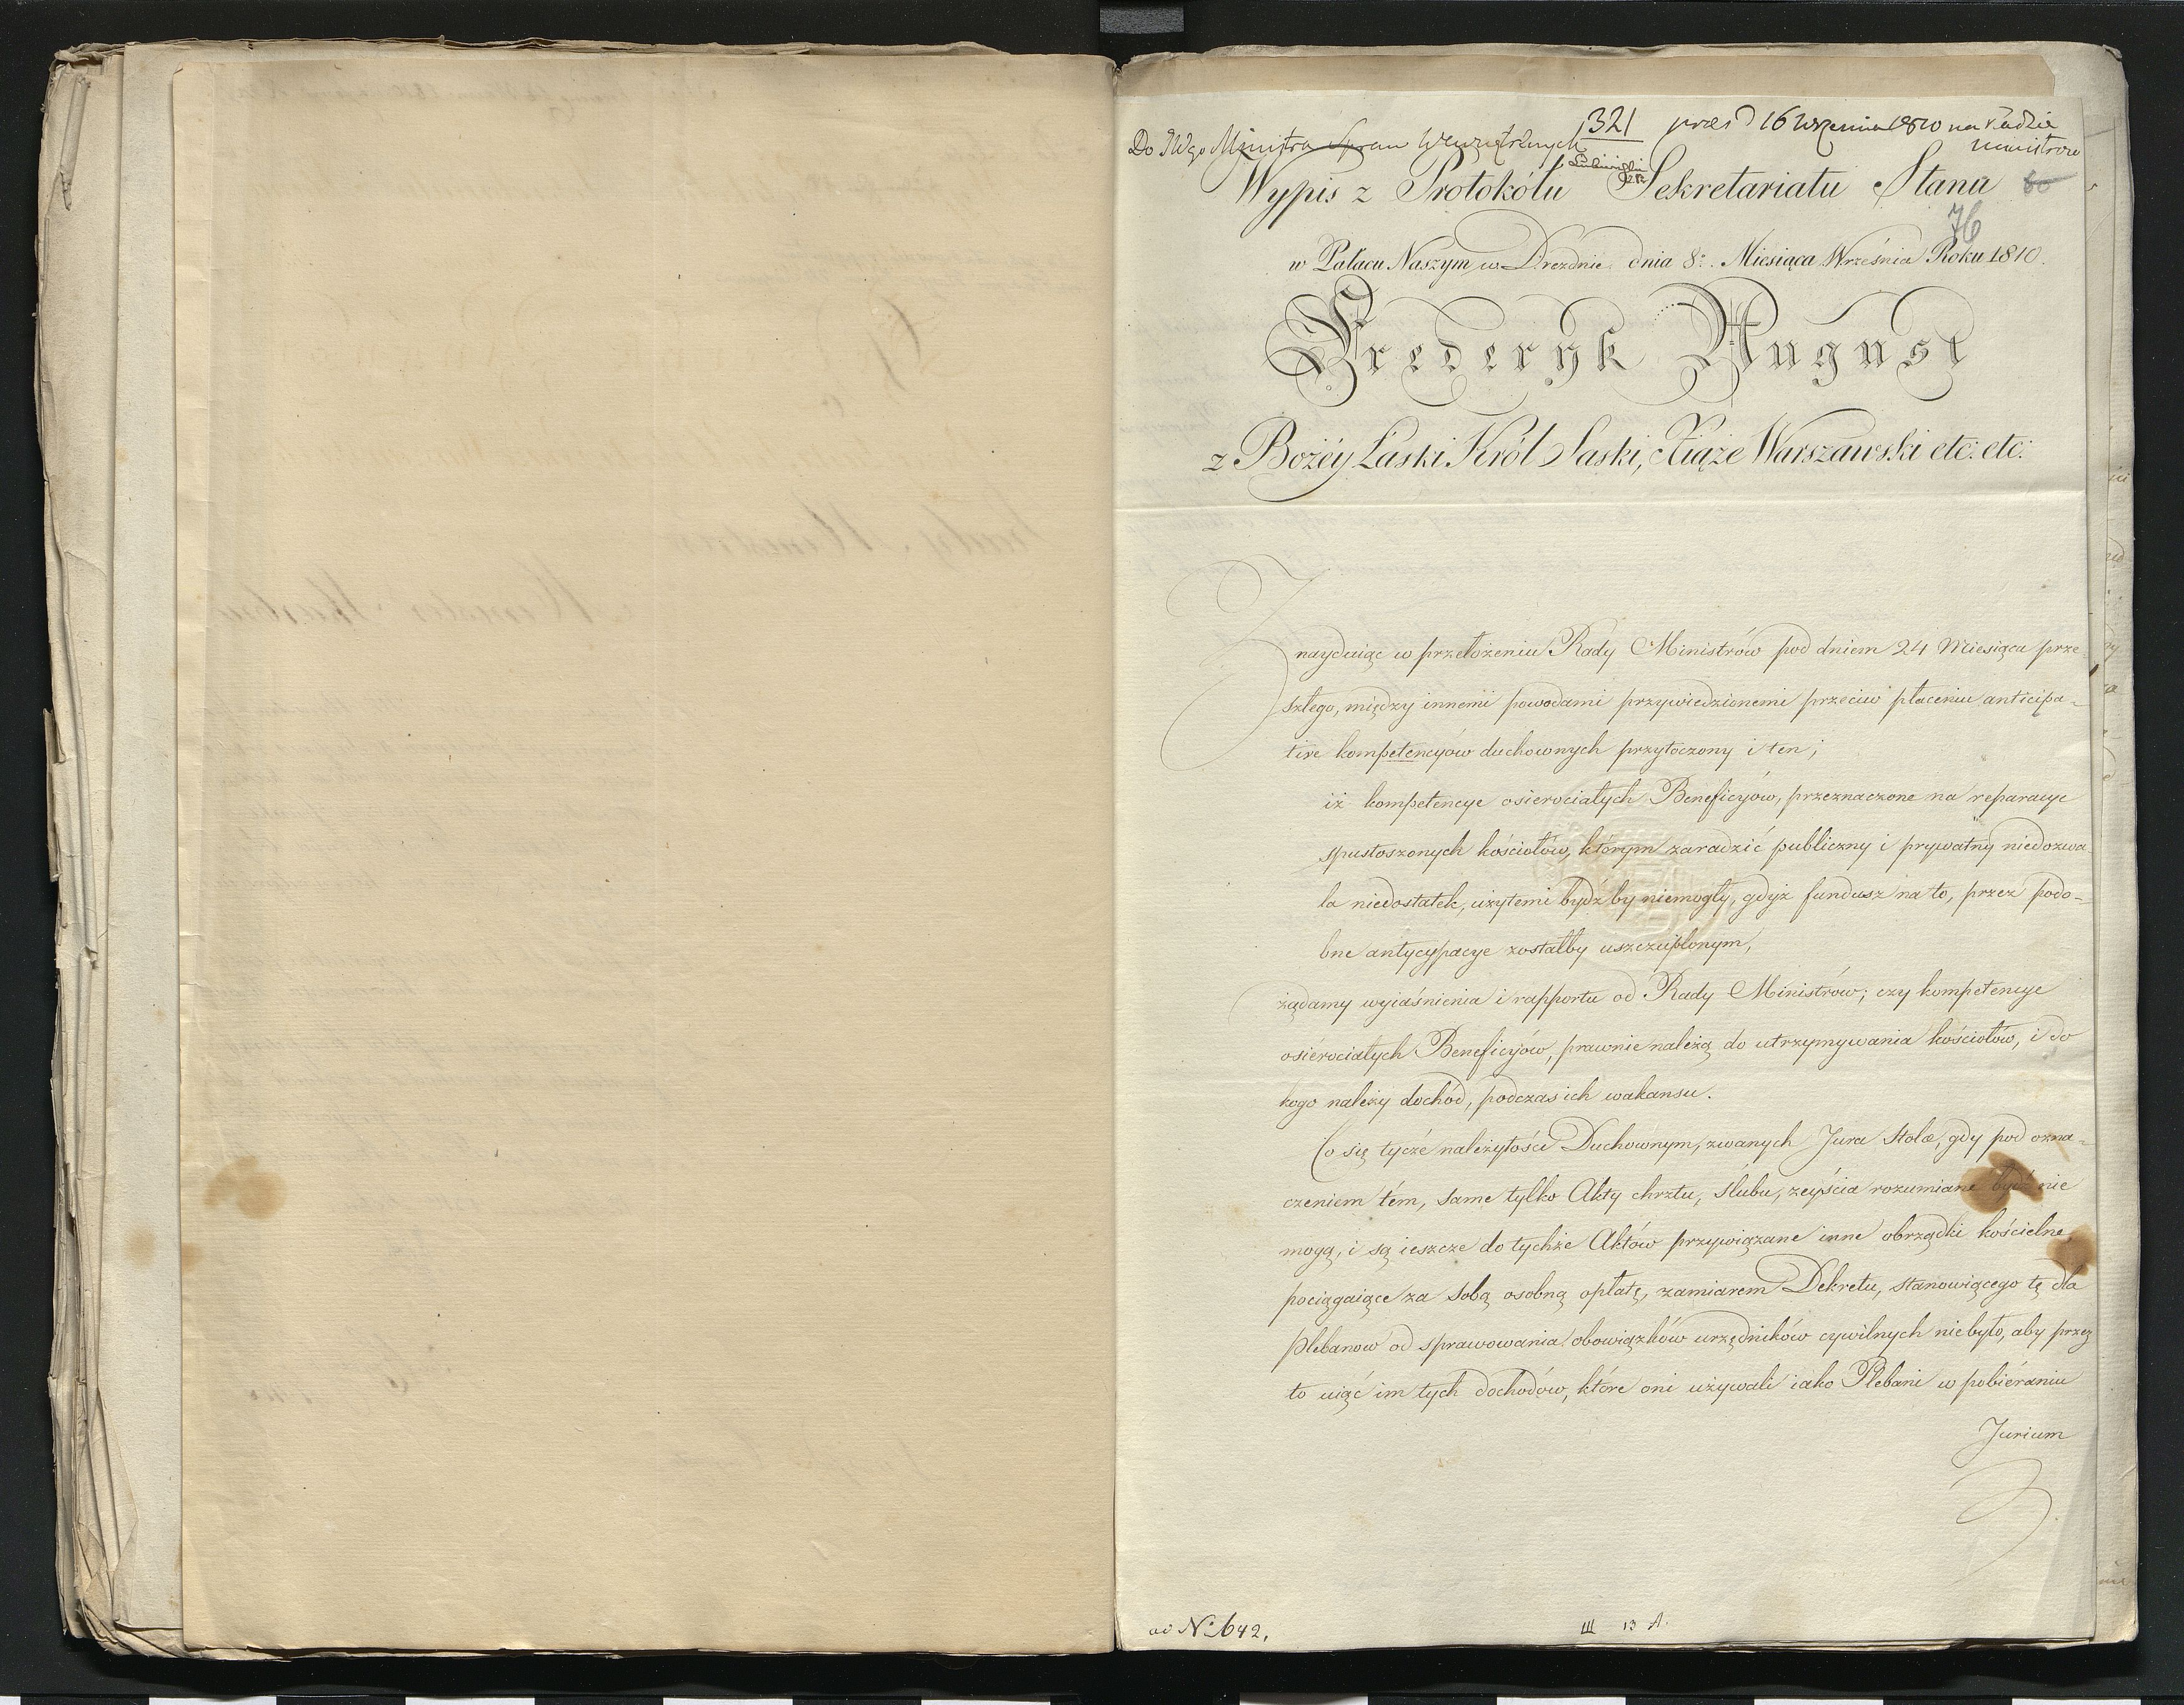 1321 præs d 16 Września 1810 na Radzie
Ministrów
Do JWgo Ministra Spraw Wewnętrznych
Wypis z Protokółu Sekretariatu Stanu 80
76
w Pałacu Naszym w Dreznie dnia 8o Miesiąca Września Roku 1810.
Frederyk August
z Bożéy Łaski Król Saski, Xiąże Warszawski etc: etc:
Znayduiąc w przełożeniu Rady Ministrów pod dniem 24 Miesiąca prze-
szłego, między innemi powodami przywiedzionemi przeciw płaceniu anticipa-
tive kompetencyów duchownych przytoczony i ten;
iż kompetencye osierociałych Beneficyów, przeznaczone na reparacye
spustoszonych kościołów, którym zaradzić publiczny i prywatny niedozwa-
la niedostatek, użytemi bydź by niemogły, gdyż fundusz na to, przez podo-
bne antycypacye zostałby uszczuplonym,
żądamy wyiaśnienia i rapportu od Rady Ministrów; czy kompetencye
osiérociałych Beneficyów, prawnie należą do utrzymywania kościołów, i do
kogo należy dochód, podczas ich wakansu.
Co się tycze należytości Duchownym, zwanych Jura Stolæ, gdy pod ozna-
czeniem tém, same tylko Akty chrztu, ślubu, zeyścia rozumiane bydź nie
mogą, i są ieszcze do tychże Aktów przywiązane inne obrządki kościelne,
pociągaiące za sobą osobną opłatę, zamiarem Dekretu, stanowiącego tę dla
Plebanow od sprawowania obowiązków urzędników cywilnych niebyło, aby przez
to uiąć im tych dochodów, które oni używali iako Plebani w pobiéraniu
Jurium
ad No 642.
III 13 A.